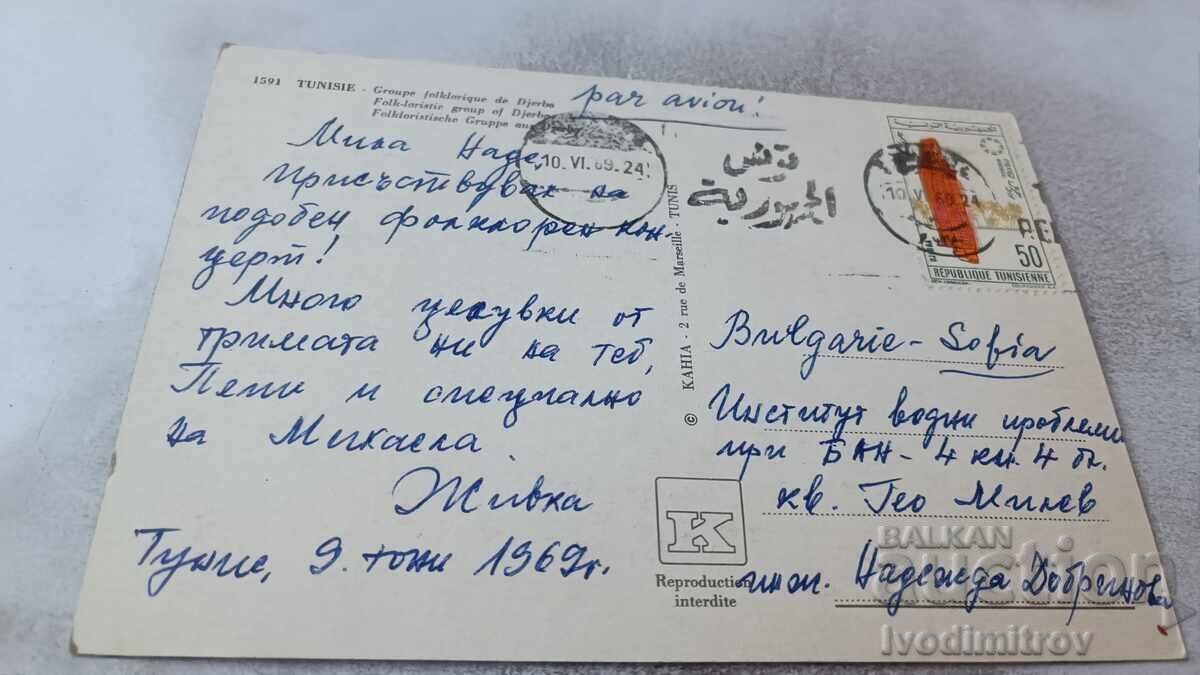 1591 TUNISIE - Groupe folklorique de Djerba
Folk-loristic group of Djerba
Folkloristische Gruppe aus
par avion!
Мила Наде,
присъствувах на
подобен фолклорен кон-
церт!
Много целувки от
тримата ни на теб,
Пепи и специално
на Михаела.
Живка
Тунис, 9. юни 1969г.
10. VI. 69. 24
تونس
الجمهورية
10 V 69.24
الجمهورية التونسية
50
REPUBLIQUE TUNISIENNE
© KAHIA - 2 rue de Marseille - TUNIS
Bulgarie - Sofia
Институт водни проблеми
при БАН - 4 км. 4 бл.
кв. Гео Милев
инж. Надежда Добринова
K
Reproduction
interdite
BALKAN
auction
Ivodimitrov